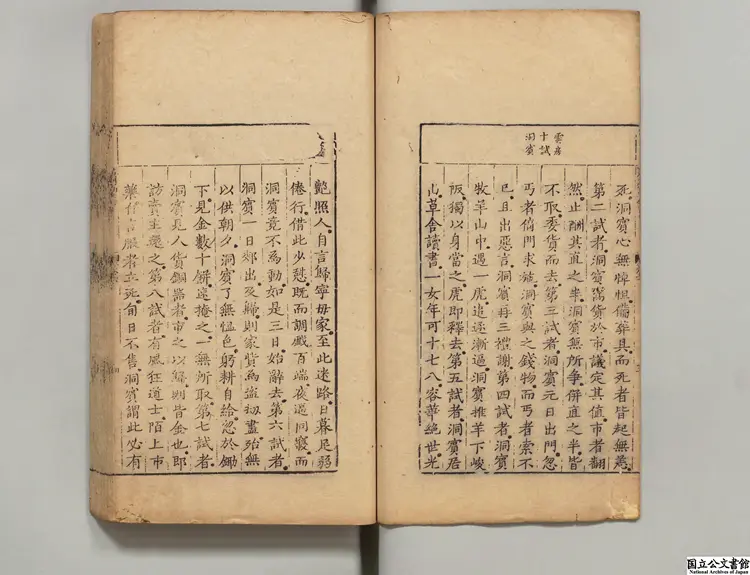 雲房
十試
洞賓
死洞賓心無悼怛備葬具而死者皆起無恙
第二試者洞賓鬻貨於市議定其值市者翻
然止酬其直之半洞賓無所爭併直之半皆
不取委貨而去第三試者洞賓元日出門忽
丐者倚門求施洞賓與之錢物而丐者索不
已且出惡言洞賓再三禮謝第四試者洞賓
牧羊山中遇一虎追逐漸逼洞賓推羊下峻
阪獨以身當之虎即釋去第五試者洞賓居
山草舍讀書一女年可十七八容華絕世光
艷照人自言歸寧母家至此迷路日暮足弱
倦行借此少憩既而調戲百端夜逼同寢而
洞賓竟不為動如是三日始辭去第六試者
洞賓一日郊出及歸則家貲為盜劫盡殆無
以供朝夕洞賓了無慍色躬耕自給忽於鋤
下見金數十餅遂掩之一無所取第七試者
洞賓見人貨銅器者市之以歸則皆金也即
訪賣主還之第八試者有風狂道士陌上市
藥自言服者立死旬日不售洞賓謂此必有
国立公文書館
National Archives of Japan